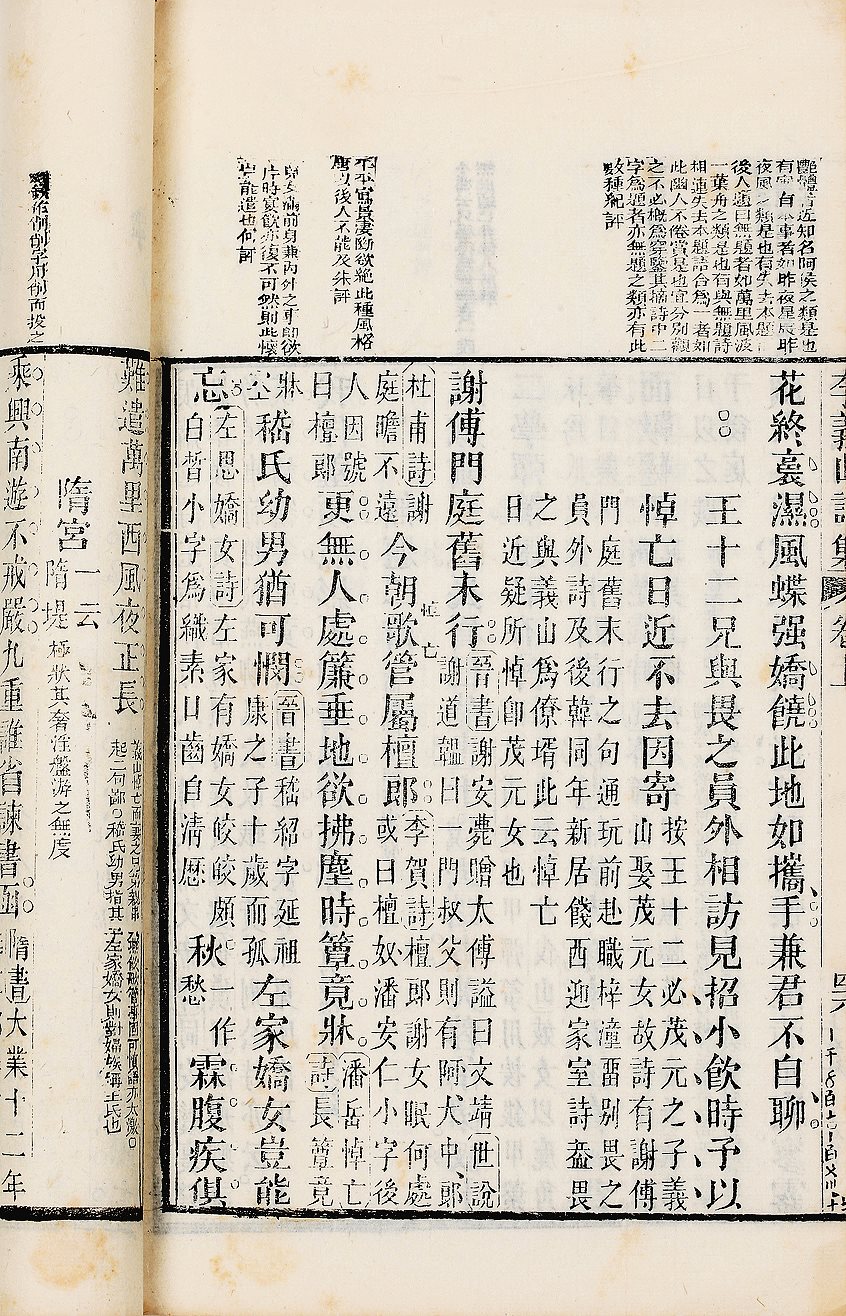 艷體詩近知名阿侯之類是也
有實有本事者如昨夜星辰昨
夜風之類是也有失去本題
後人題曰無題者如萬里風波
一葉舟之類是也有與無題詩
相連失去本題誤合為一者如
此幽人不倦賞是也宜分別觀
之不必概為穿鑿其摘詩中二
字為題者亦無題之類亦有此
數種紀評
花終裛濕風蝶强嬌饒此地如攜手兼君不自聊
王十二兄與畏之員外相訪見招小飲時予以
悼亡日近不去因寄
按王十二必茂元之子義
山娶茂元女故詩有謝傅
門庭舊末行之句通玩前赴職梓潼畱別畏之
員外詩及後韓同年新居餞西迎家室詩葢畏
之與義山爲僚壻此云悼亡
日近疑所悼卽茂元女也
謝傅門庭舊末行
晉書謝安薨贈太傅謚曰文靖世說
謝道韞曰一門叔父則有阿大中郎
今朝歌管屬檀郎
悼亡
李賀詩檀郎謝女眠何處
或曰檀奴潘安仁小字後
杜甫詩謝
庭瞻不遠
人因號
曰檀郎
更無人處簾垂地欲拂塵時簟竟牀
潘岳悼亡
詩長簟竟
牀
空
嵇氏幼男猶可憫
晉書嵇紹字延祖
康之子十歲而孤
左家嬌女豈能
忘
左思嬌女詩左家有嬌女皎皎頗
白晳小字爲織素口齒自清歷
秋
一作
愁
霖腹疾俱
平平寫景凄斷欲絕此種風格
唐以後人不能及朱評
片時宴飲亦復不可然則此懷
豈能遣也何評
難遣萬里西風夜正長
起二句鄙○嵇氏幼男指其
子左家嬌女則對婦族稱王氏也
隋宮
一云
隋堤
極狀其奢淫盤游之無度
乘興南遊不戒嚴九重誰省諫書函
隋書大業十二年